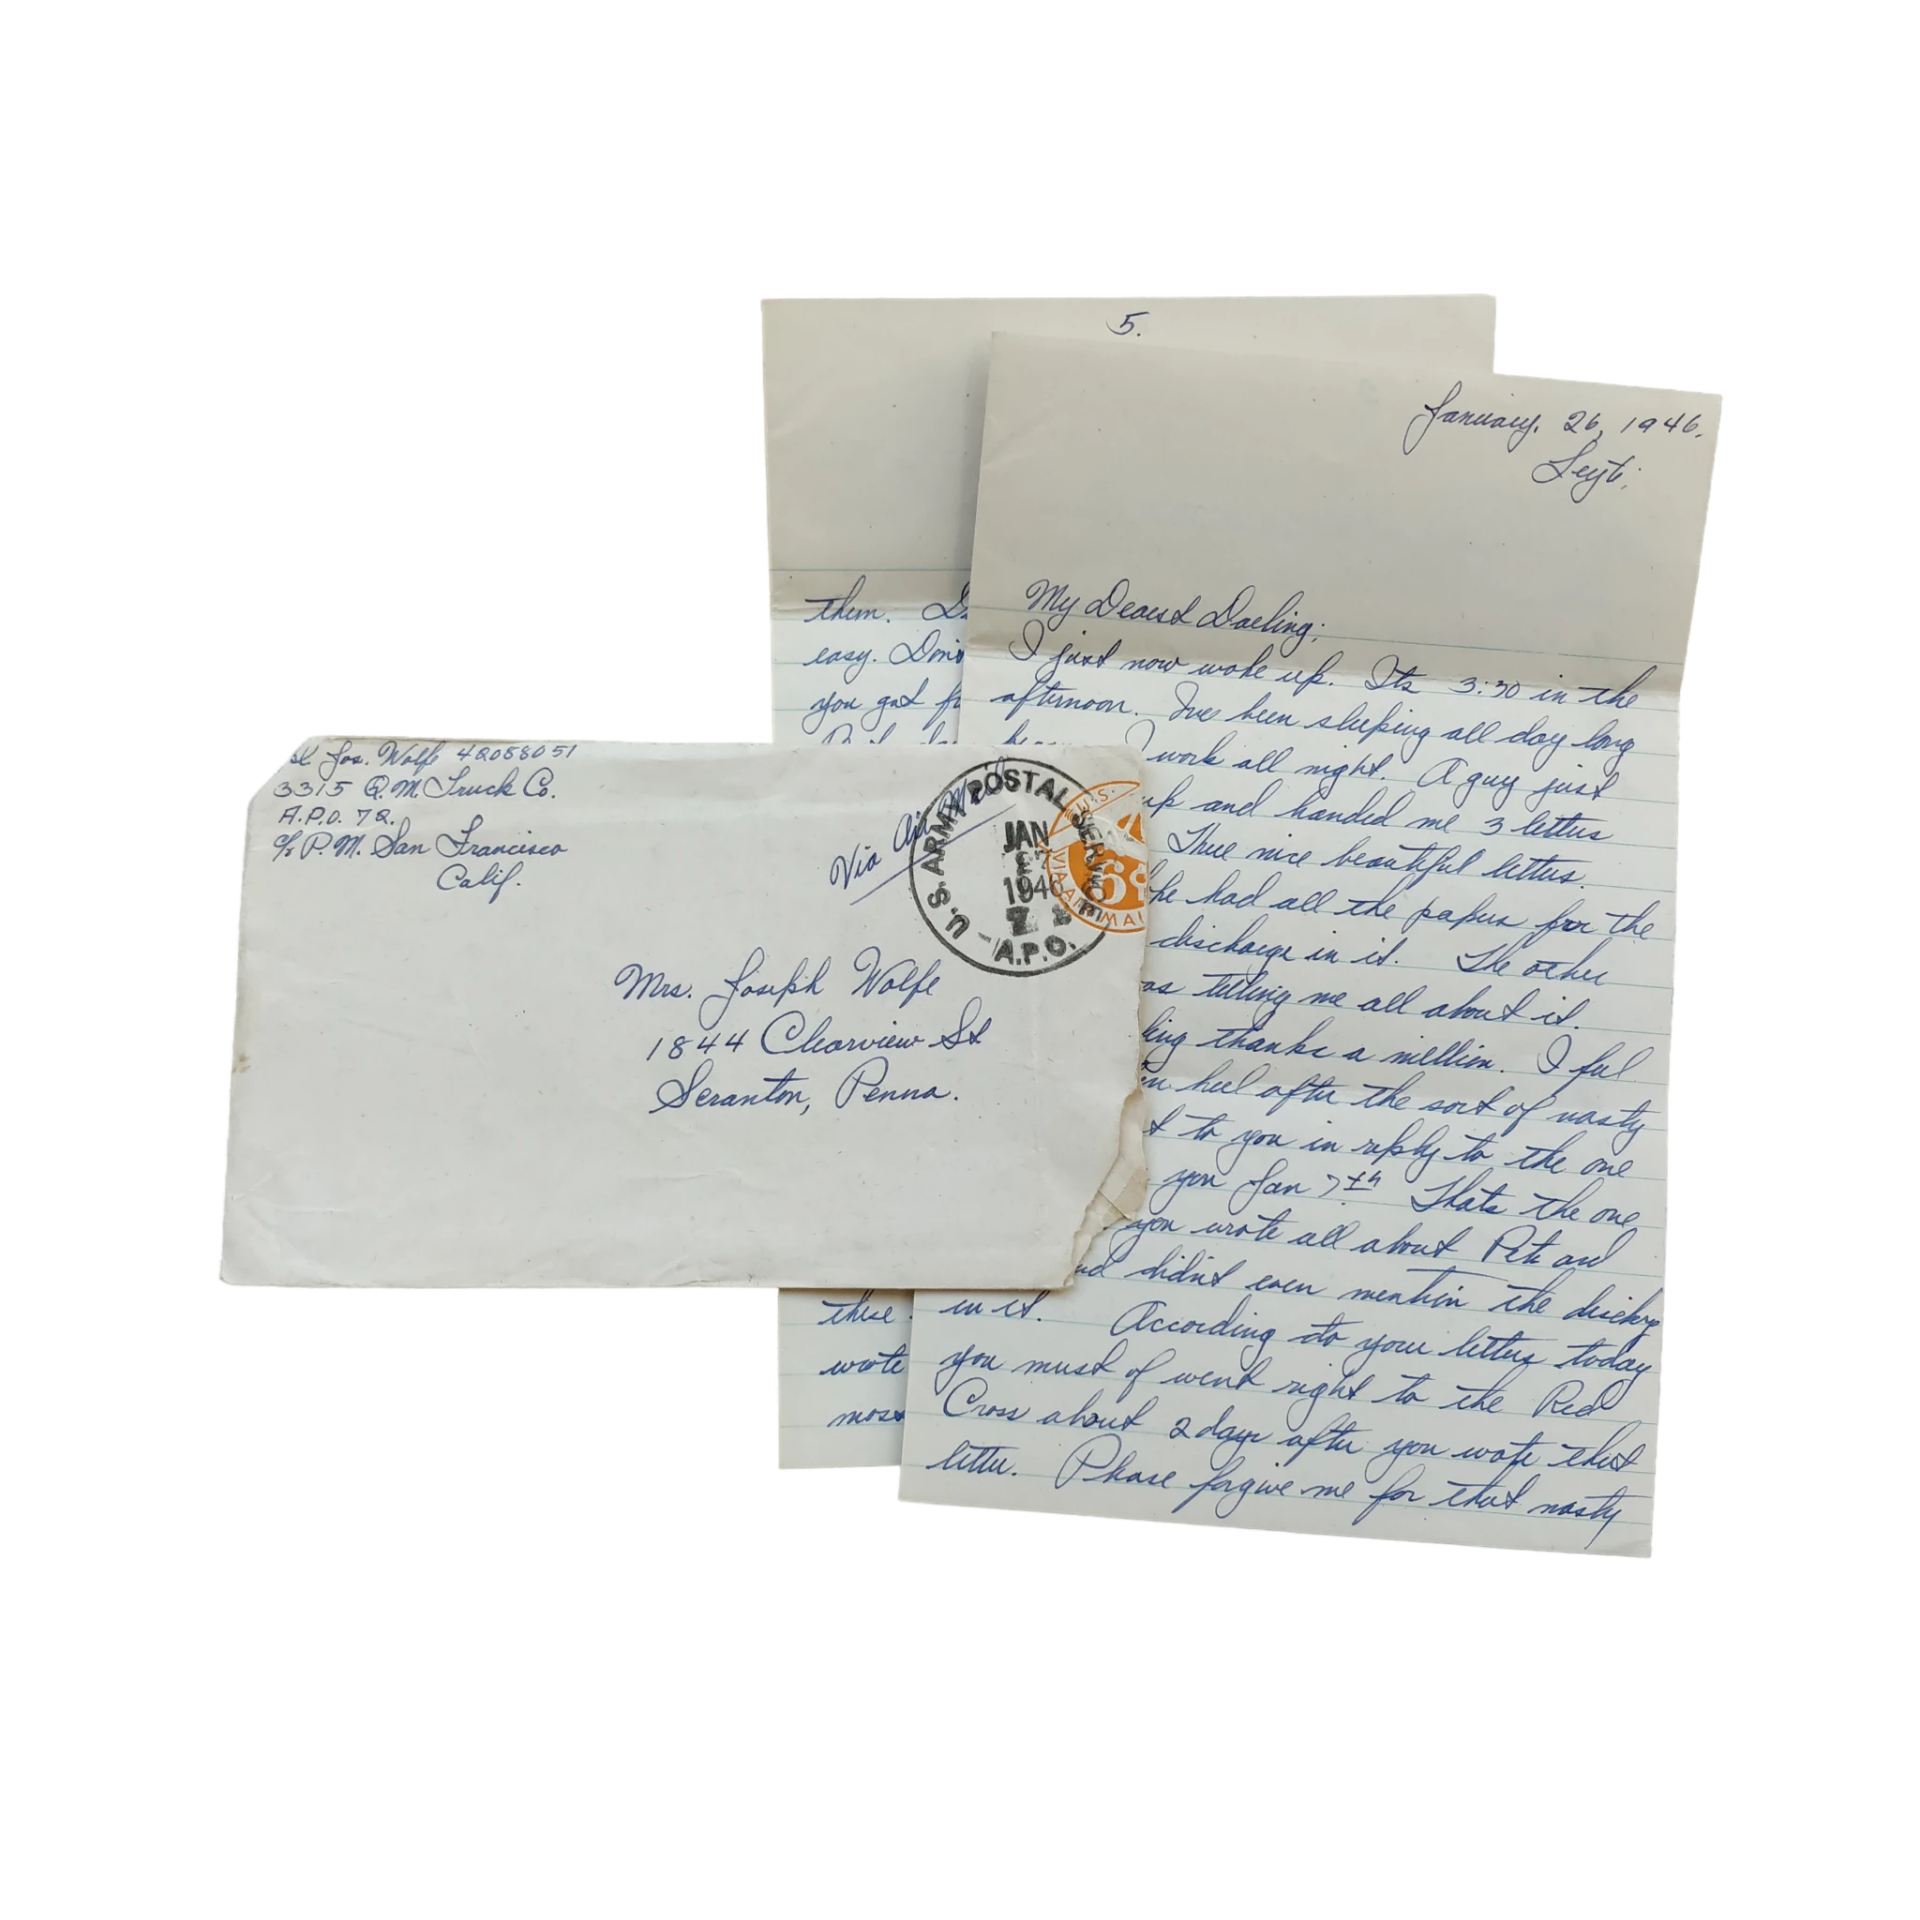 5.
them.
easy. Don't
you got
these
wrote
most
January. 26, 1946.
Leyte;
My Dearest Darling;
I just now woke up. Its 3:30 in the
afternoon. Ive been sleeping all day long
I work all night. A guy just
up and handed me 3 letters
Three nice beautiful letters.
he had all the papers for the
discharge in it. The other
as telling me all about it.
ling thanks a million. I feel
heel after the sort of nasty
t to you in reply to the one
you Jan 7th Thats the one
you wrote all about Pete and
nd didnt even mention the discharg
in it. According to your letters today
you must of went right to the Red
Cross about 2 days after you wrote that
letter. Please forgive me for that nasty
Jos. Wolfe 42058051
3315 Q.M. Truck Co.
A.P.O. 72.
c/o P.M. San Francisco
Calif.
Via Air Mail
U.S. ARMY POSTAL SERVICE
JAN
1946
A.P.O.
U.S.
VIA AIR MAIL
6¢
Mrs. Joseph Wolfe
1844 Clearview St
Scranton, Penna.